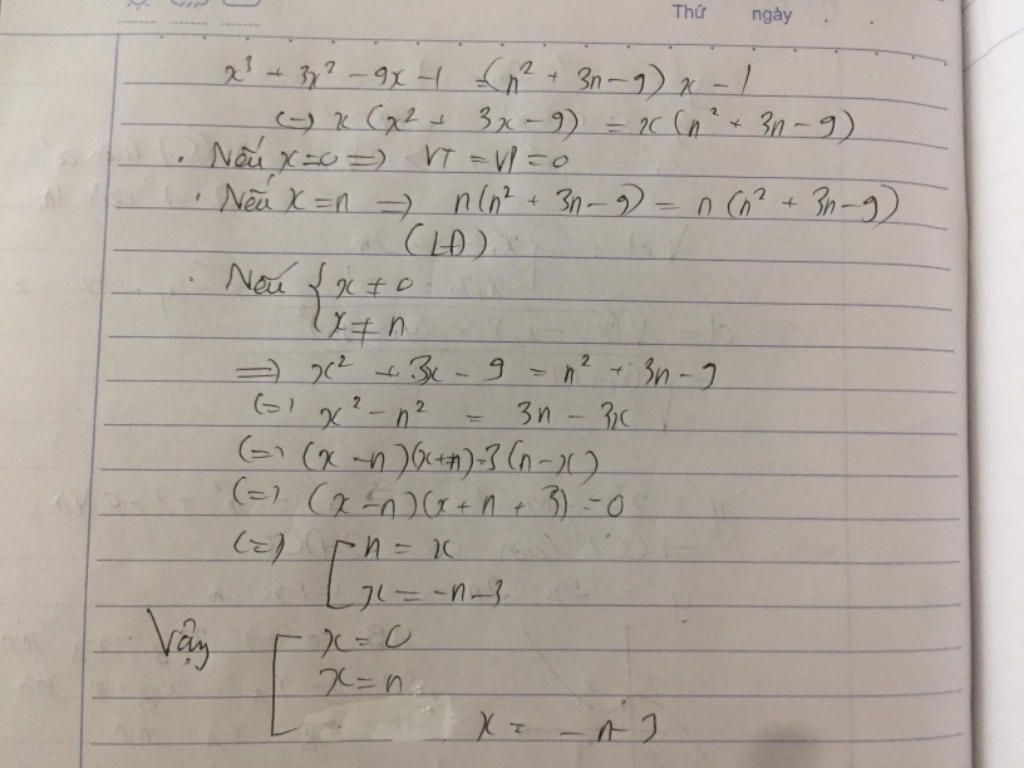 Thứ ngày . .
x³ + 3x² - 9x - 1 = (n² + 3n - 9) x - 1
(-) x (x² + 3x - 9) = x (n² + 3n - 9)
. Nếu x = 0 => VT = VP = 0
. Nếu x = n => n(n² + 3n - 9) = n (n² + 3n - 9)
(LĐ)
. Nếu { x ≠ 0
x ≠ n
=> x² + 3x - 9 = n² + 3n - 9
(=) x² - n² = 3n - 3x
(=) (x - n)(x+n) = 3(n - x)
(=) (x - n)(x + n + 3) = 0
(=) [ n = x
x = -n - 3
Vậy [ x = 0
x = n
x = -n - 3